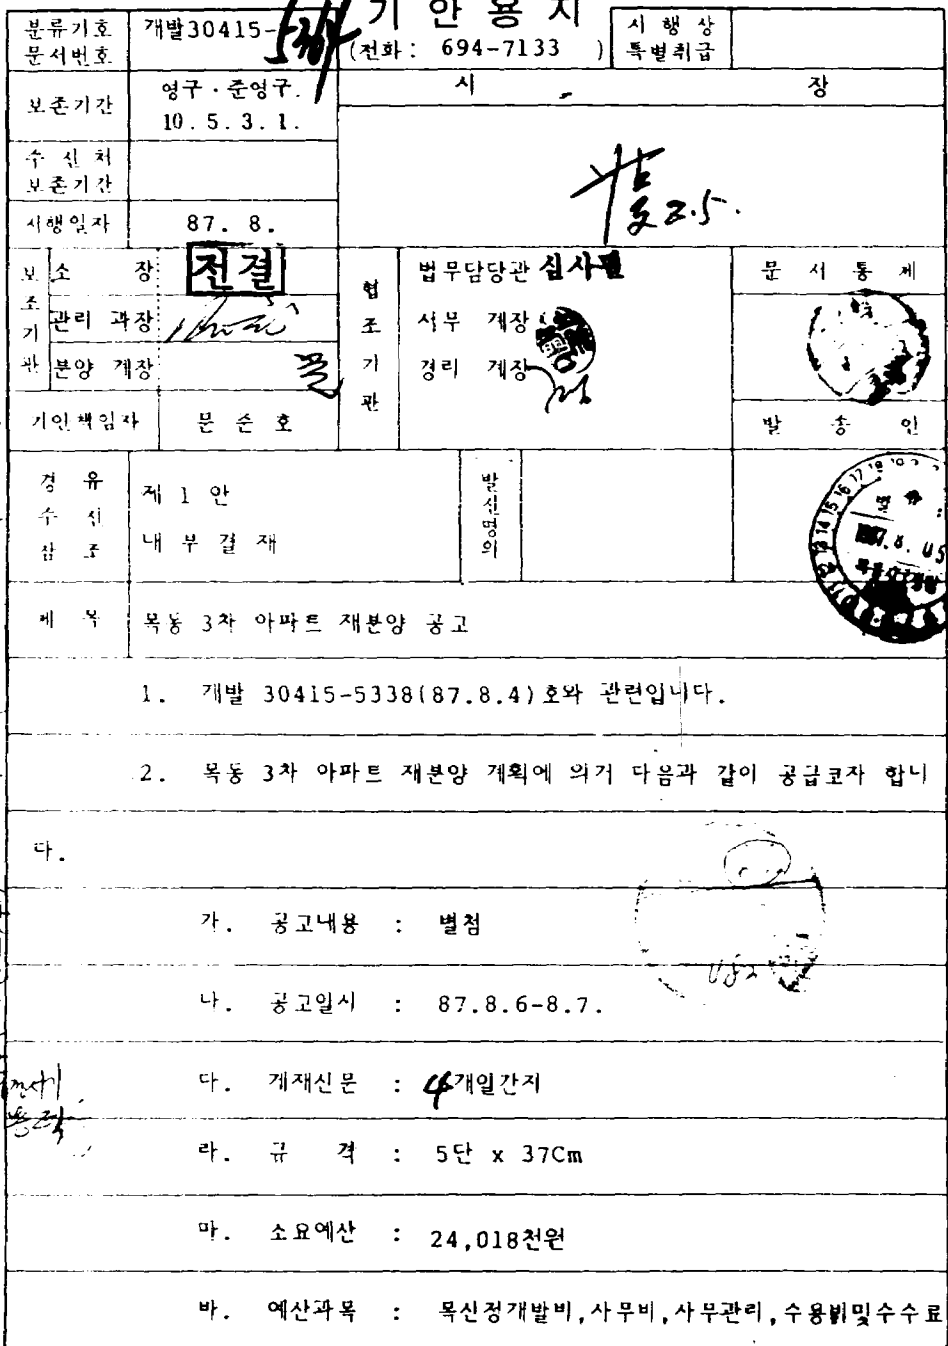 기안용지
분류기호 문서번호 개발30415-
(전화: 694-7133 )
시행상 특별취급
보존기간 영구·준영구. 10.5.3.1.
시 장
수신처 보존기간
시행일자 87. 8.
2.5.
보조기관
소 장 전결
관리 과장
분양 계장
협조기관
법무담당관 심사필
서무 계장
경리 계장
문서통제
기안책임자 문순호
발송인
경유 수신 참조
제 1 안
내부결재
발신명의
제 목 목동 3차 아파트 재분양 공고
1. 개발 30415-5338(87.8.4)호와 관련입니다.
2. 목동 3차 아파트 재분양 계획에 의거 다음과 같이 공급코자 합니
다.
가. 공고내용 : 별첨
나. 공고일시 : 87.8.6-8.7.
다. 게재신문 : 4개일간지
라. 규 격 : 5단 x 37Cm
마. 소요예산 : 24,018천원
바. 예산과목 : 목신정개발비,사무비,사무관리,수용비및수수료